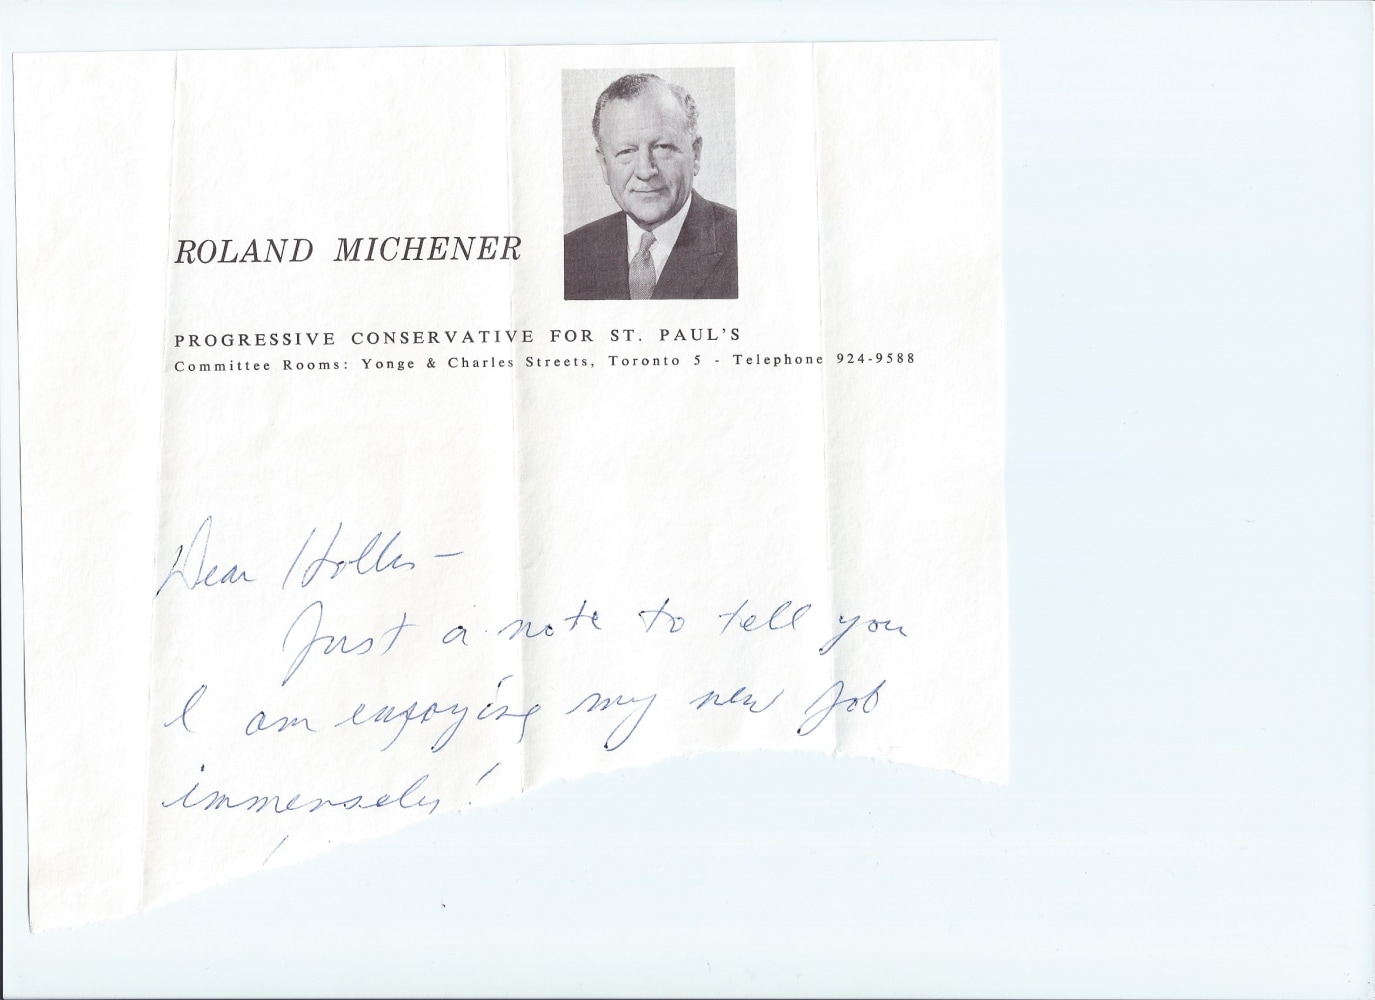 ROLAND MICHENER
PROGRESSIVE CONSERVATIVE FOR ST. PAUL'S
Committee Rooms: Yonge & Charles Streets, Toronto 5 - Telephone 924-9588
Dear Hollis -
Just a note to tell you
I am enjoying my new job
immensely!